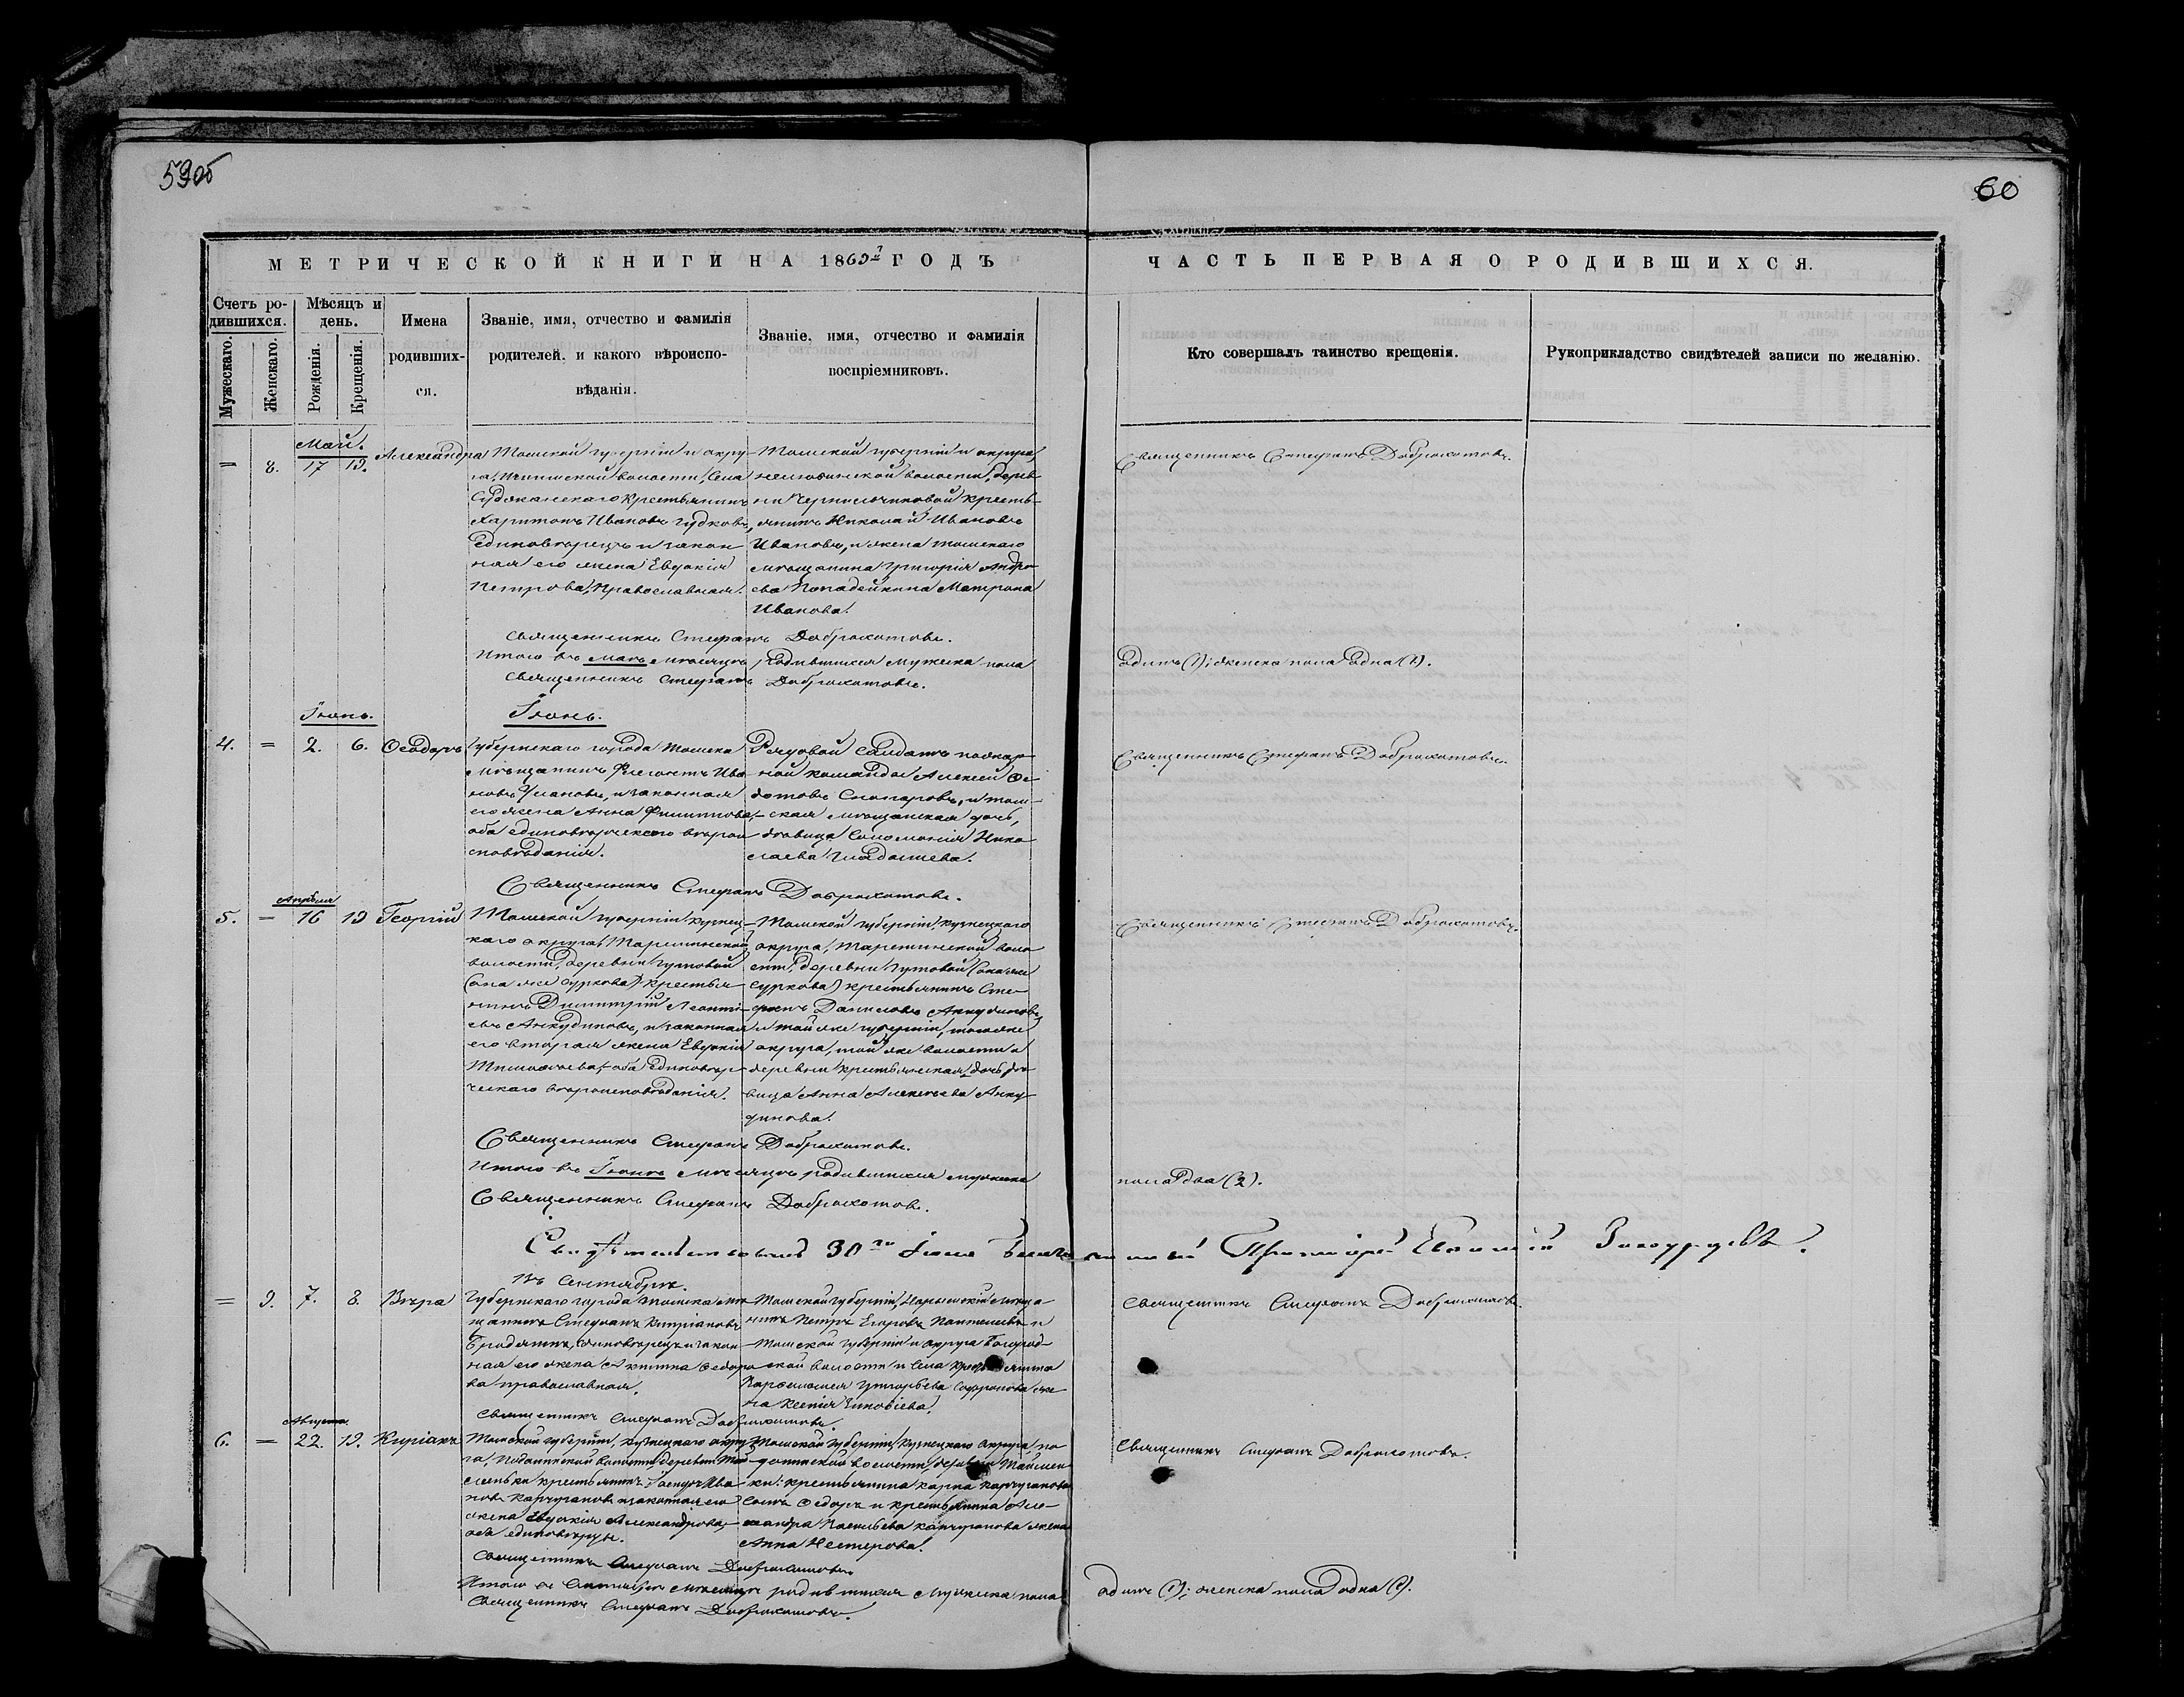 59об
60
МЕТРИЧЕСКОЙ КНИГИ НА 1869й ГОДЪ
ЧАСТЬ ПЕРВАЯ О РОДИВШИХСЯ.
Счетъ ро-
дившихся.
Мужескаго.
Женскаго.
Мѣсяцъ и
день.
Рожденія.
Крещенія.
Имена
родивших-
ся.
Званіе, имя, отчество и фамилія
родителей, и какого вѣроиспо-
вѣданія.
Званіе, имя, отчество и фамилія
воспріемниковъ.
Кто совершалъ таинство крещенія.
Рукоприкладство свидѣтелей записи по желанію.
Май.
= 8. 17 19. Александра
Томской губерніи и окру-
га, волости, села
Судженскаго крестьянинъ
Харитонъ Ивановъ Гудковъ,
единовѣрецъ и закон
ная его жена Евдокія
Петрова, православная.
Томской губерніи и округа,
волости, дерев
ни крестья-
янинъ Николай Ивановъ
Ивановъ, и жена томскаго
мѣщанина Григорія Андре
ева Матрона
Иванова.
Священникъ Стефанъ Доброхотовъ.
Священникъ Стефанъ Доброхотовъ.
Итого въ маѣ мѣсяцѣ родившихся мужска пола
одинъ (1); женска пола одна (1).
Священникъ Стефанъ Доброхотовъ.
Іюнь.
Іюнь.
4. = 2. 6. Ѳеодоръ
Губернскаго города Томска
мѣщанинъ Флегонтъ Ива
новъ Улановъ, и законная
его жена Анна Филиппова,
оба единовѣрческаго вѣрои
сповѣданія.
Рядовой солдатъ пожар
ной команды Алексѣй Ѳе
дотовъ и том-
ская мѣщанская дочь,
дѣвица Соломонія Нико
лаева Гладышева.
Священникъ Стефанъ Доброхотовъ.
Священникъ Стефанъ Доброхотовъ.
Апрѣля
5. = 16 19 Георгій
Томской губерніи, Кузнец-
каго округа, Тарсминской
волости, деревни Гутовой
(она же Суркова) крестья
нинъ Димитрій Леонті-
евъ Анкудиновъ, и законная
его вторая жена Евдокія
Тимоѳеева, оба единовѣр-
ческаго вѣроисповѣданія.
Томской губерніи, Кузнецкаго
округа, Тарсминской воло
сти, деревни Гутовой (она же
Суркова) крестьянинъ Сте-
фанъ Даниловъ Анкудиновъ,
и той же губерніи, того же
округа, той же волости и
деревни крестьянская дочь дѣ
вица Анна Алексѣева Анку-
динова.
Священникъ Стефанъ Доброхотовъ.
Священникъ Стефанъ Доброхотовъ.
Итого въ Іюнѣ мѣсяцѣ родившихся мужска
пола два (2).
Священникъ Стефанъ Доброхотовъ.
Свидѣтельствовалъ 30го Іюня Благочинный Протоіерей
Въ Сентябрѣ.
= 9. 7. 8. Вѣра
Губернскаго города Томска мѣ
щанинъ Стефанъ Кипріановъ
единовѣрецъ и закон
ная его жена Акилина Ѳедоро
ва православная.
Томской губерніи, Нарымскій мѣща
нинъ Петръ Егоровъ и
Томской губерніи и округа Богород-
ской волости и села крестьянина
Варѳоломея Григорьева Софронова же
на Ксенія Зиновіева.
Священникъ Стефанъ Доброхотовъ.
Священникъ Стефанъ Доброхотовъ.
Августа.
6. = 22. 19. Киріакъ
Томской губерніи, Кузнецкаго окру
га, волости, деревни Тай
меньки крестьянинъ Ива
новъ и законная его
жена Евдокія Александрова,
оба единовѣрцы.
Томской губерніи, Кузнецкаго округа,
волости, деревни Таймен
ки: крестьянина Карпа
сынъ Ѳедоръ и крестьянина Але-
ксандра Васильева жена
Анна Нестерова.
Священникъ Стефанъ Доброхотовъ.
Священникъ Стефанъ Доброхотовъ.
Итого въ Сентябрѣ мѣсяцѣ родившихся мужска пола
одинъ (1); женска пола одна (1).
Священникъ Стефанъ Доброхотовъ.